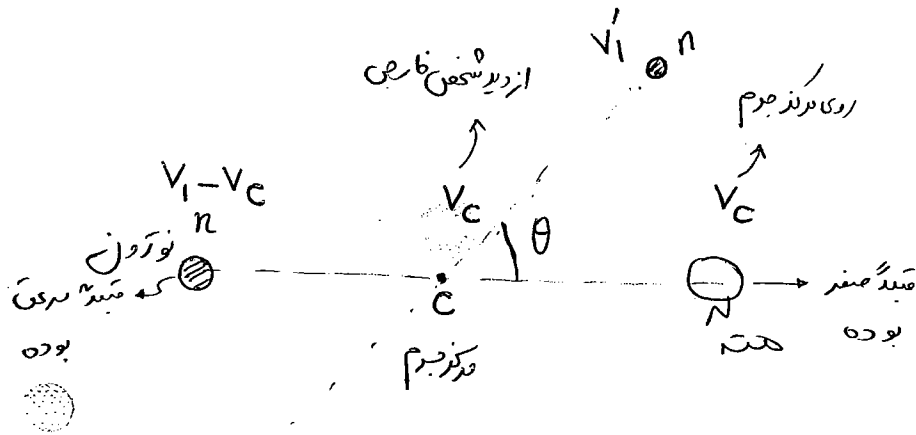 V₁′ n
از دید شخص خارجی
روی مرکز جرم
V₁ – V_C
V_C
V_C
n
نوترون
که قبلاً سرعت
بوده
θ
C
مرکز جرم
N
هسته
قبلاً صفر
بوده